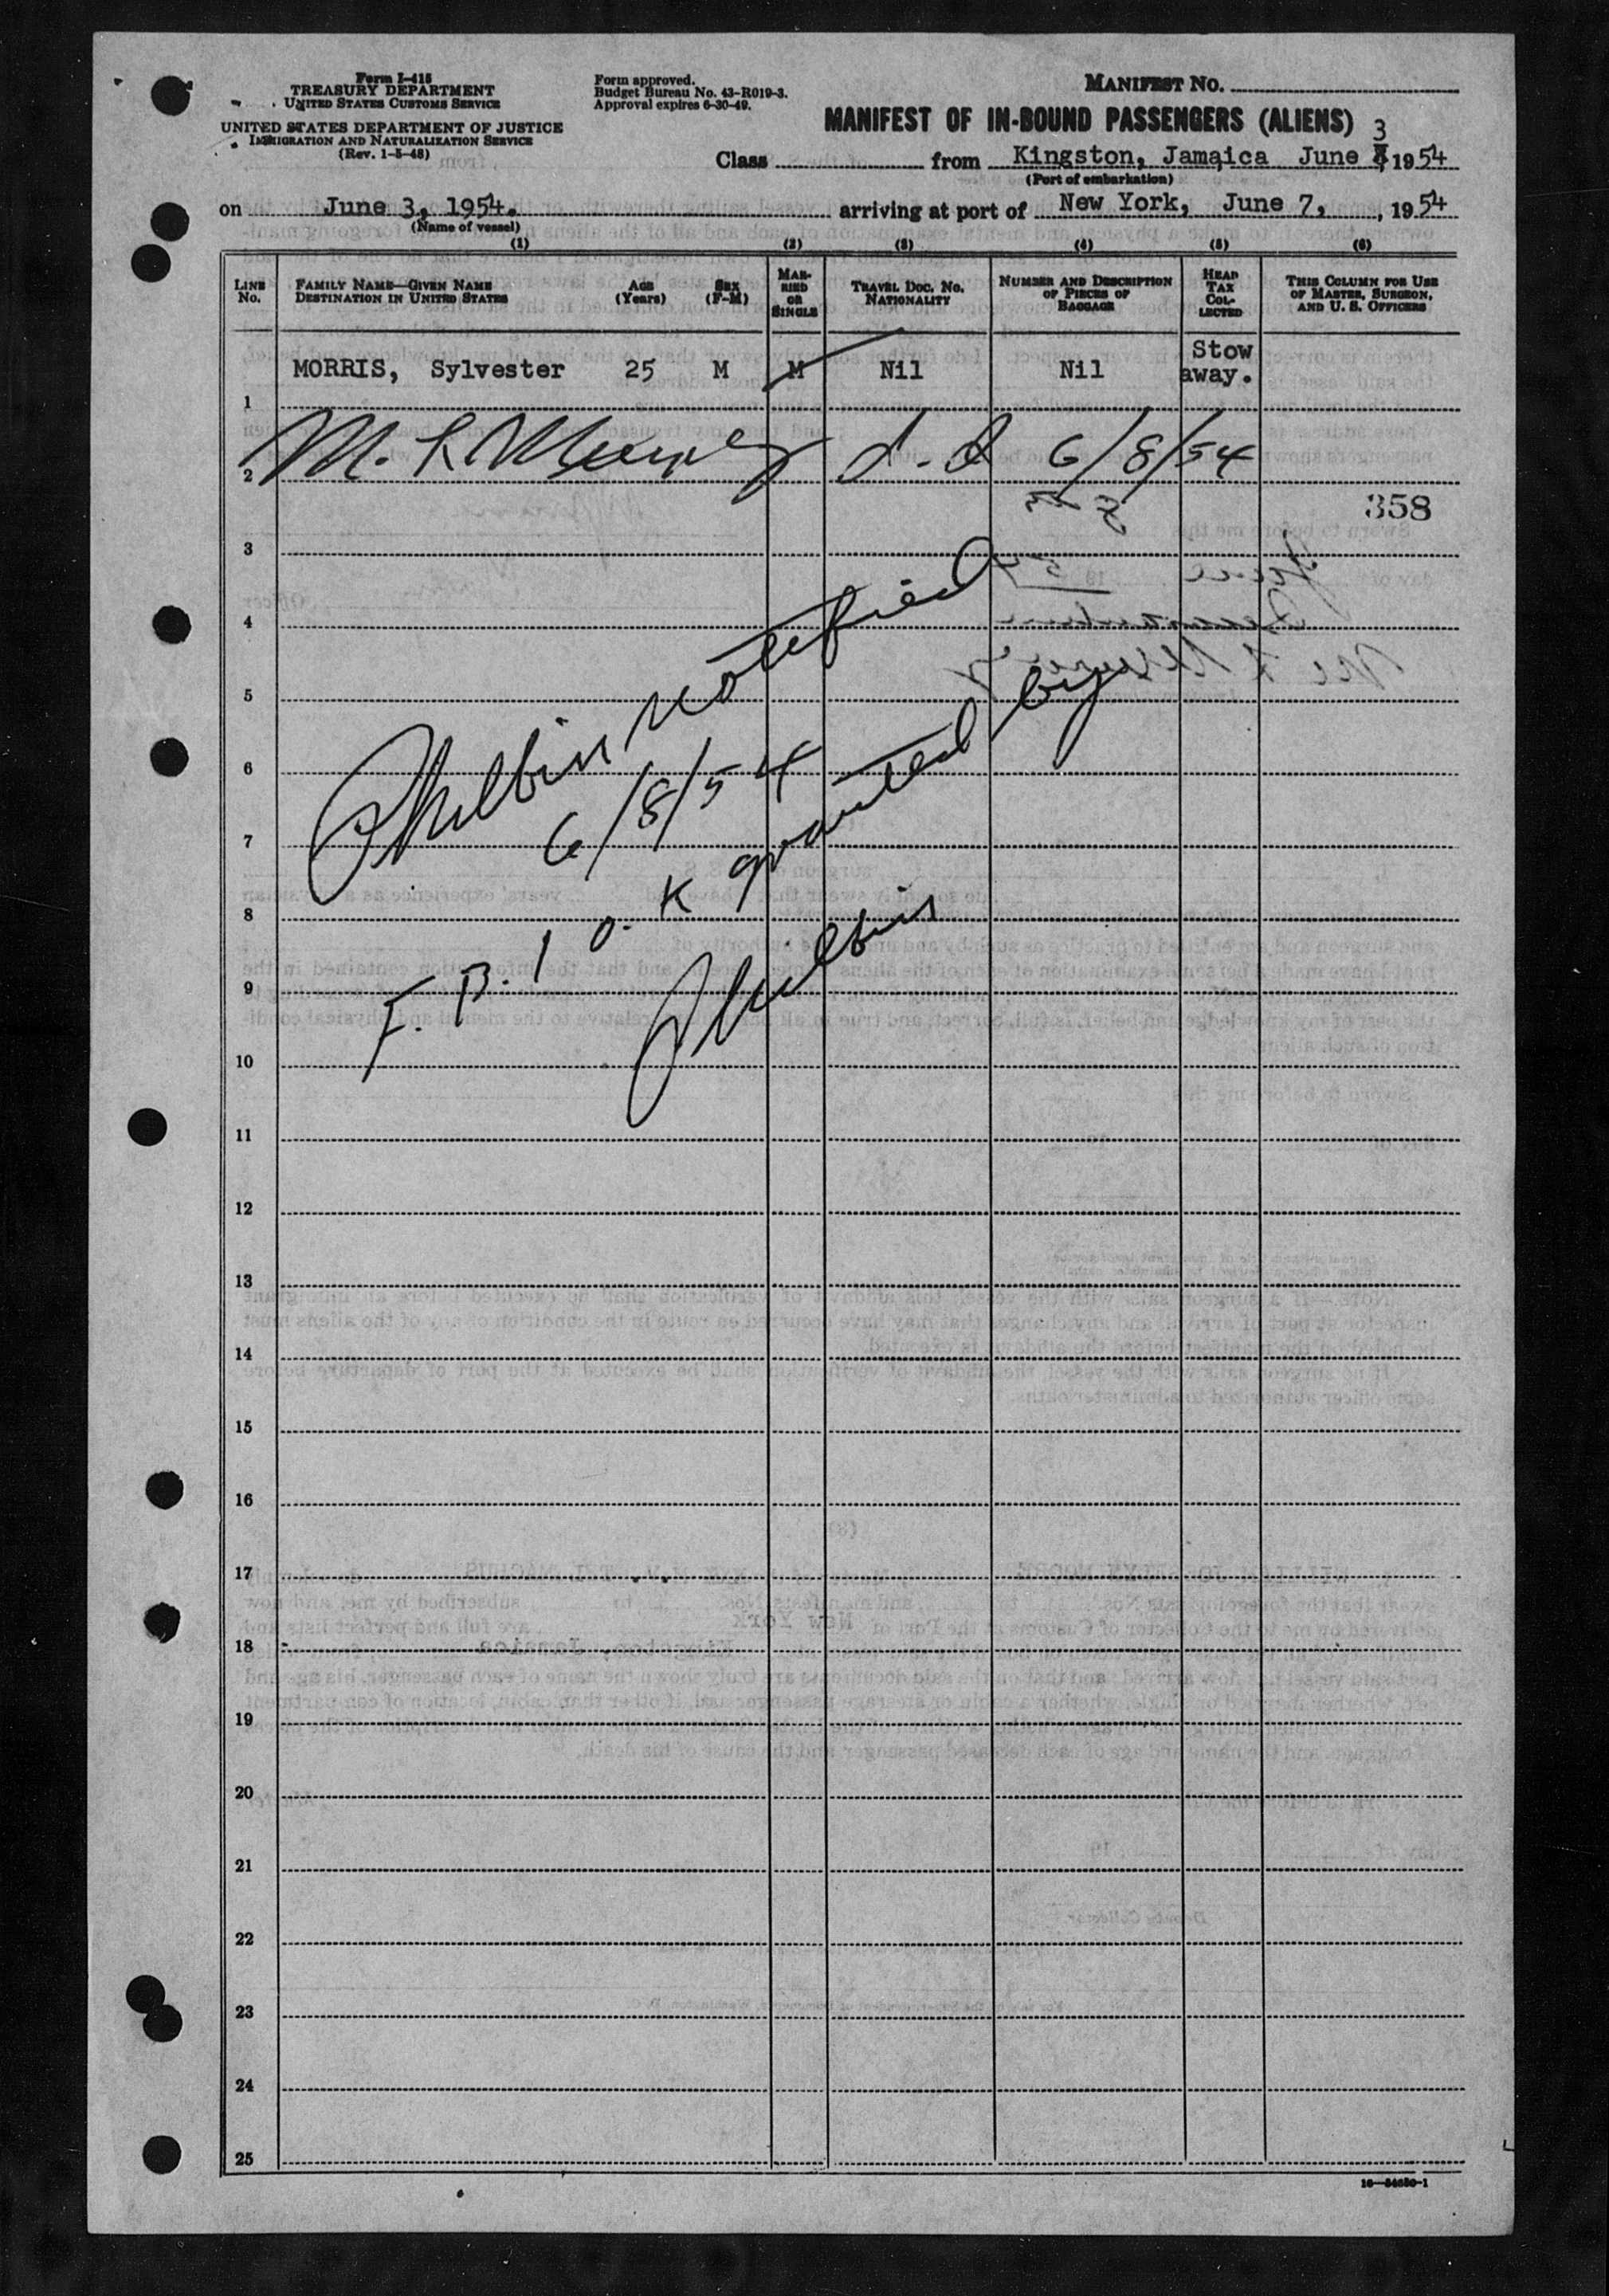 Form I-415
TREASURY DEPARTMENT
UNITED STATES CUSTOMS SERVICE
UNITED STATES DEPARTMENT OF JUSTICE
IMMIGRATION AND NATURALIZATION SERVICE
(Rev. 1-5-48)
Form approved.
Budget Bureau No. 43-R019-3.
Approval expires 6-30-49.
MANIFEST NO.
MANIFEST OF IN-BOUND PASSENGERS (ALIENS)
3
Class from Kingston, Jamaica June , 1954
(Port of embarkation)
on June 3, 1954. arriving at port of New York, June 7, , 1954
(Name of vessel)
(1) (2) (3) (4) (5) (6)
LINE No.
FAMILY NAME—GIVEN NAME
DESTINATION IN UNITED STATES
AGE (Years)
SEX (F-M)
MARRIED OR SINGLE
TRAVEL DOC. No.
NATIONALITY
NUMBER AND DESCRIPTION
OF PIECES OF
BAGGAGE
HEAD TAX COLLECTED
THIS COLUMN FOR USE
OF MASTER, SURGEON,
AND U. S. OFFICERS
MORRIS, Sylvester 25 M M Nil Nil Stow away.
1
2 M. 6/8/54
358
3
4
5
notified
6
6/8/54
7
8
F. B. I O. K granted by
9
10
11
12
13
14
15
16
17
18
19
20
21
22
23
24
25